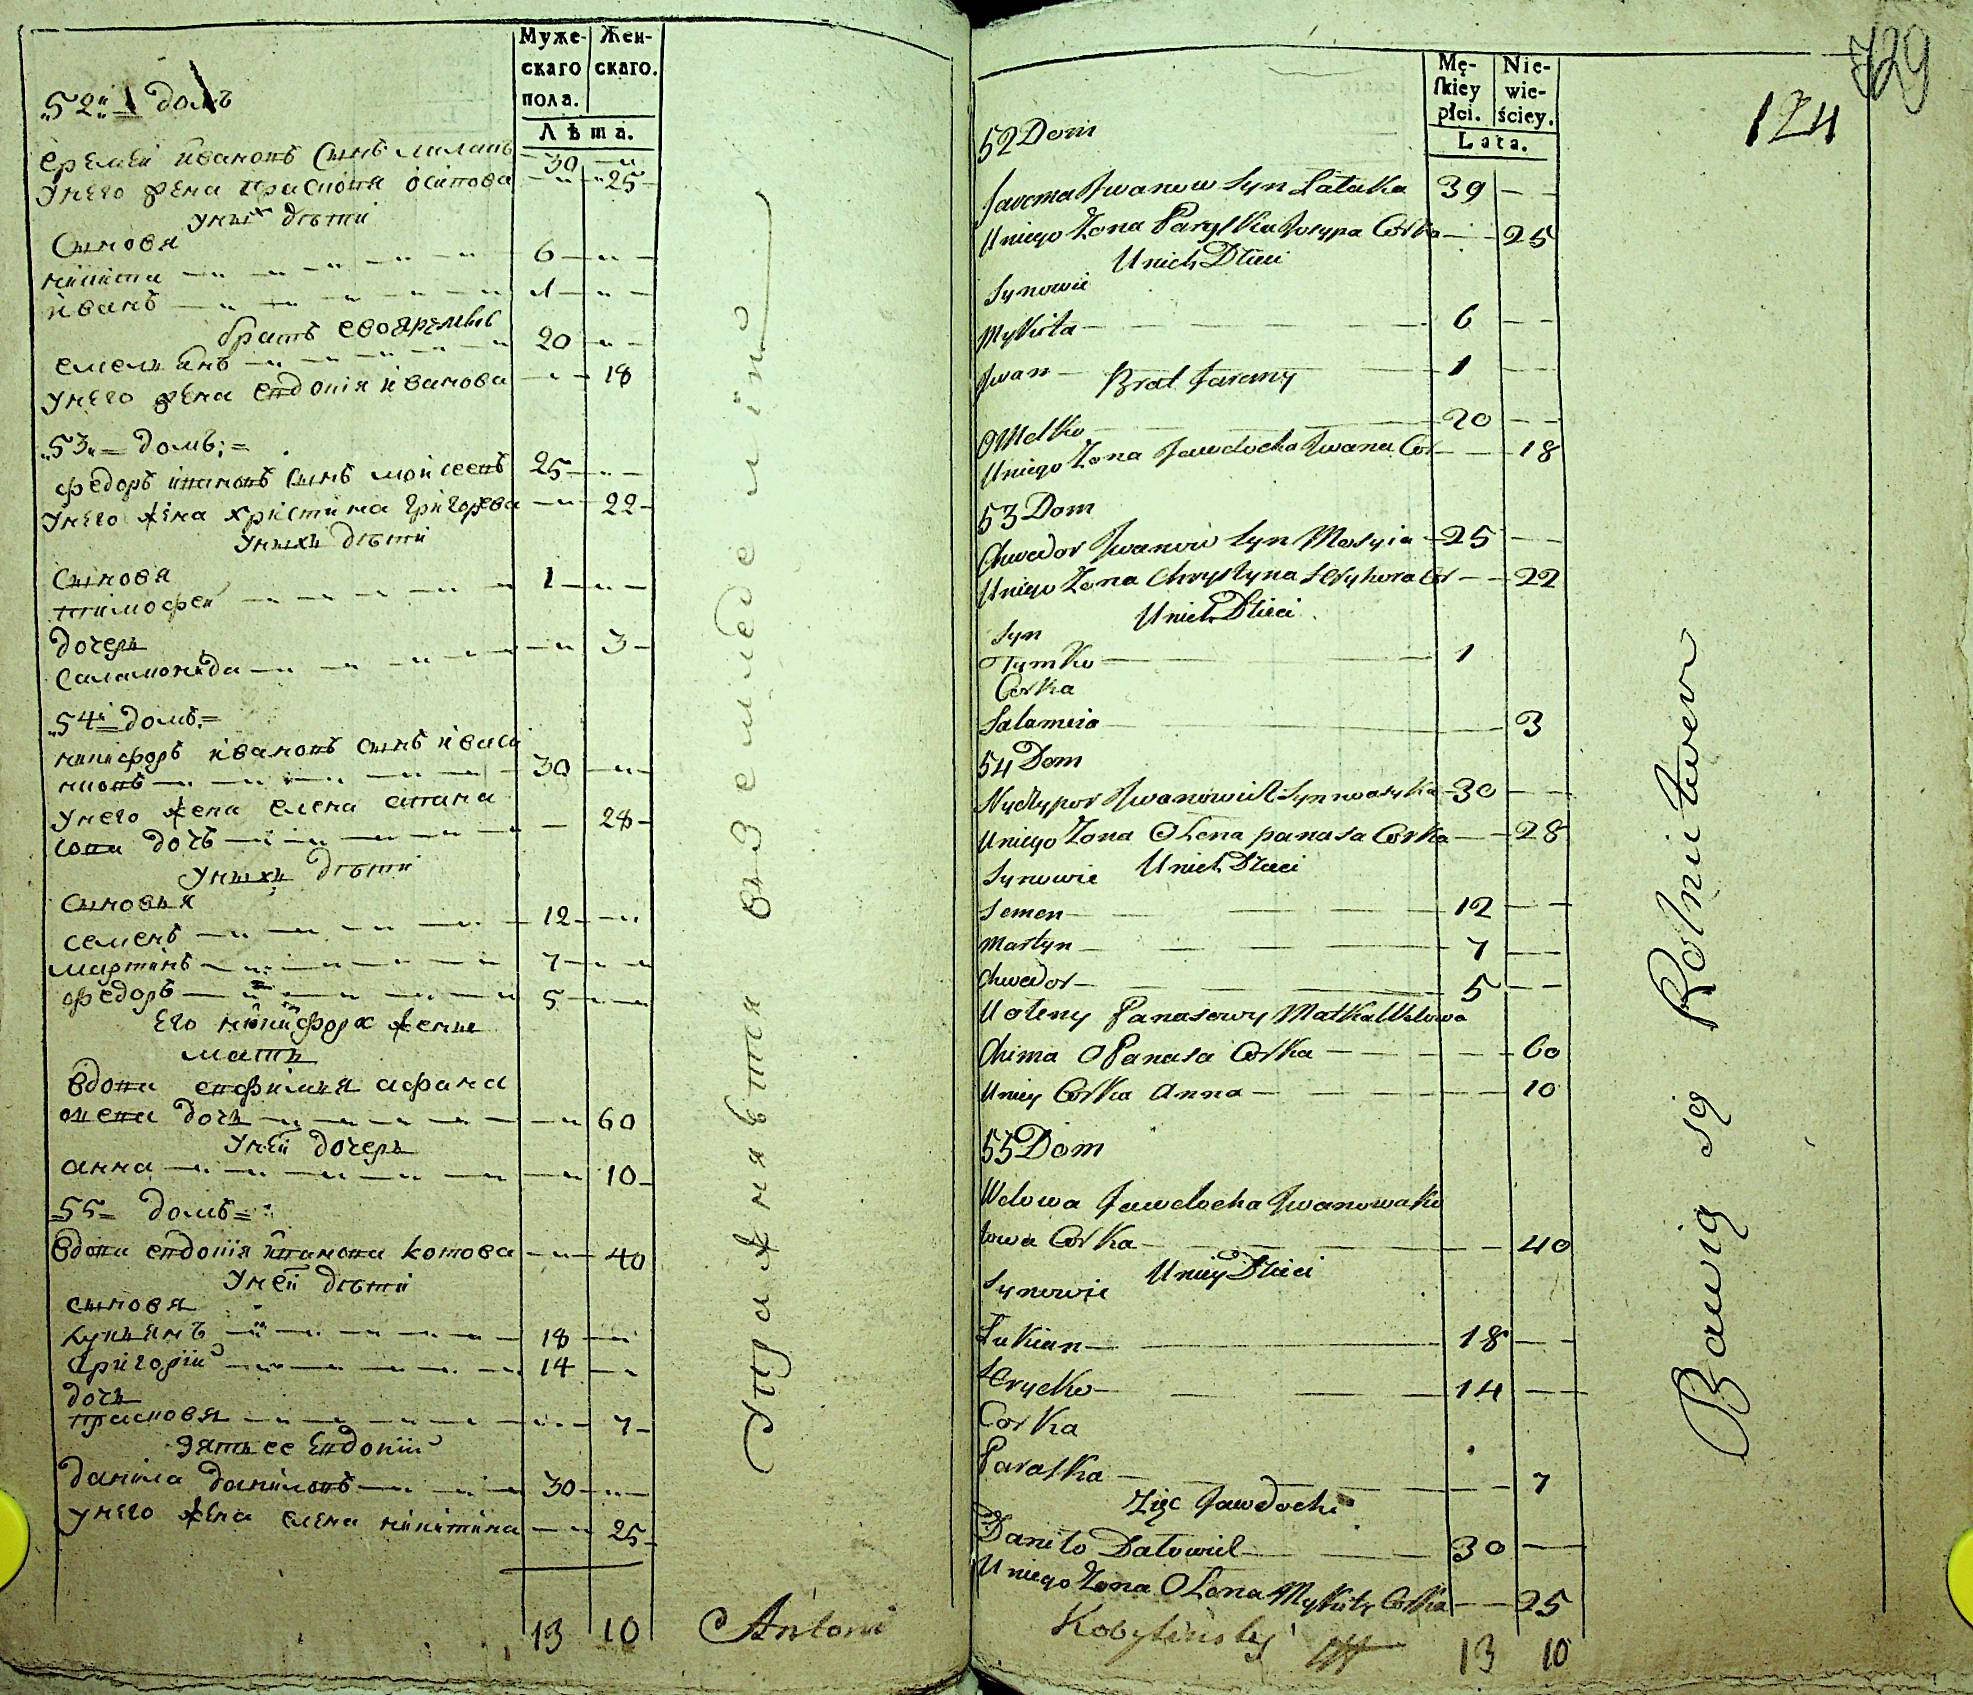 Муже-
скаго
пола.
Жен-
скаго.
Лѣта.
52й домъ
еремѣй ивановъ сынъ 30
унего жена прасковя осипова 25
уних дѣти
Сыновя
никита 6
иванъ 1
братъ его
емельянъ 20
унего жена евдокія иванова 18
53 домъ
федоръ ивановъ сынъ моисеевъ 25
унего жена христина григорева 22
унихъ дѣти
Сыновя
тимофей 1
дочерь
саламонида 3
54й домъ
никифоръ ивановъ сынъ иваси
ковъ 30
унего жена елена афана
28
унихъ дѣти
Сыновья
семенъ 12
мартинъ 7
федоръ 5
Его никифора жены
мать
вдова евфимья афана
сьева дочь 60
уней дочерь
анна 10
55 домъ
вдова евдокія иванова котова 40
уней дѣти
сыновя
лукьянъ 18
григорій 14
дочь
прасковя 7
зять ее евдокіи
данила даниловъ 30
унего жена елена никитина 25
13 10
Упражнявтся вземледеліи
Antoni
Mę-
skiey
płci.
Nie-
wie-
ściey.
Lata.
729
124
52 Dom
Jarema Jwanow Syn Łatuka 39
Uniego Zona Paraska Josypa Corka 25
Unich Dzieci
Synowie
Mykita 6
Jwan 1
Brat Jaremy
Omelko 20
Uniego Zona Jawdocha Jwana Cor 18
53 Dom
Chwedor Jwanow Syn Mosyia 25
Uniego Zona Chrystyna Hryhora Cor 22
Unich Dzieci
Syn
Tymko 1
Corka
Salamia 3
54 Dom
Nyczypor Jwanowicz Syn wasyka 30
Uniego Zona Olena panasa Corka 28
Unich Dzieci
Synowie
Semen 12
Martyn 7
Chwedor 5
U oleny Panasowy Matka Wdowa
Chima Opanasa Corka 60
Uniey Corka Anna 10
55 Dom
Wdowa Jawdocha Jwanowa Ko
towa Corka 40
Uniey Dzieci
Synowie
Łukian 18
Hryćko 14
Corka
Paraska 7
Zięc Jawdochi
Daniło 30
Uniego Zona Olena Mykity Corka 25
Kobyliński
13 10
Bawią się Rolnictwem